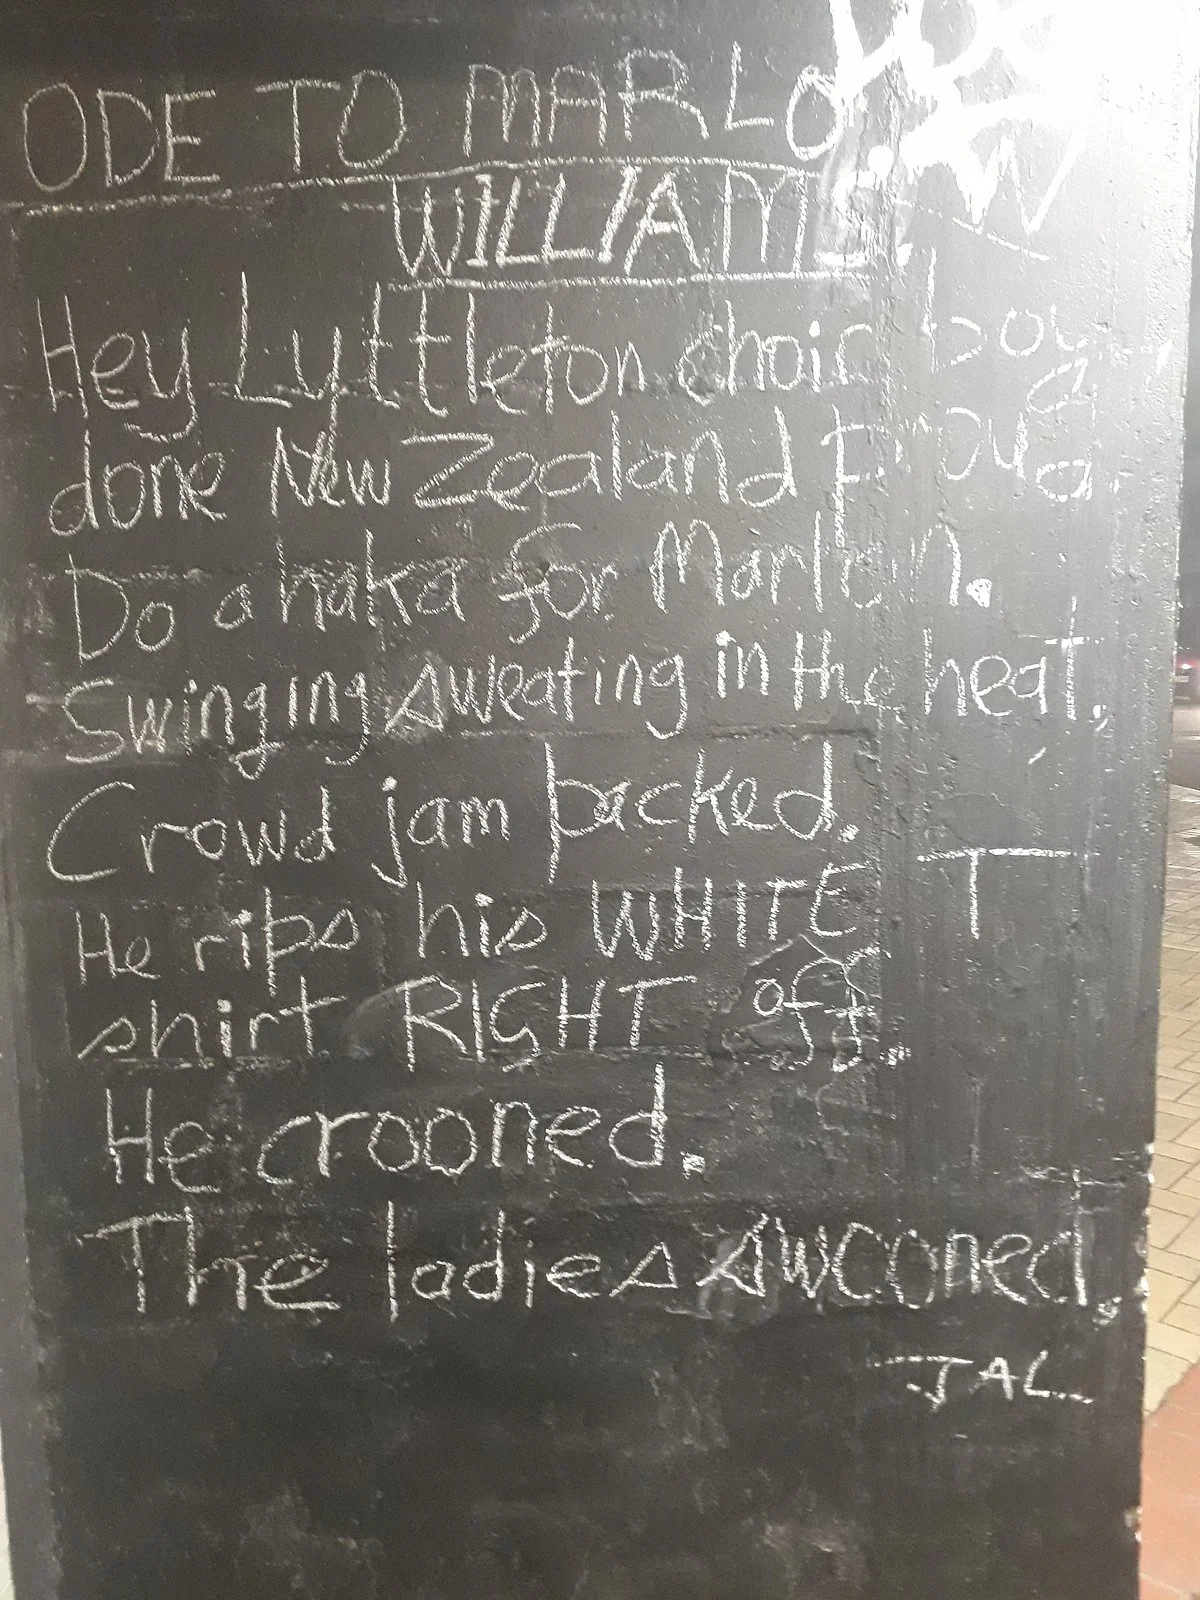 ODE TO MARLO
WILLIAMS.
Hey Lyttleton choir boy,
done New Zealand Proud.
Do a haka for Marlon.
Swinging sweating in the heat,
Crowd jam packed.
He rips his WHITE T
shirt RIGHT off.
He crooned.
The ladies swooned.
JAL